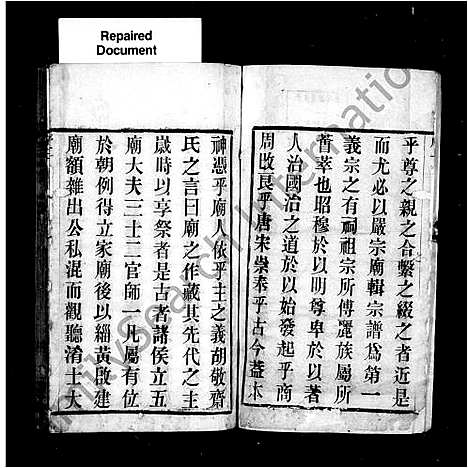 Repaired
Document
乎尊之親之合繫之綴之者近是
而尤必以嚴宗廟輯宗譜爲第一
義宗之有祠祖宗所傅麗族屬所
薈萃也昭穆於以明尊卑於以著
人治國治之道於以始發起乎商
周改良乎唐宋崇奉乎古今蓋木
神憑乎廟人依乎主之義胡敬齋
氏之言曰廟之作藏其先代之主
歲時以享祭者是古者諸侯立五
廟大夫三士二官師一凡屬有位
於朝例得立家廟後以緇黃啟建
廟額雜出公私混而觀聽淆士大
FamilySearch International